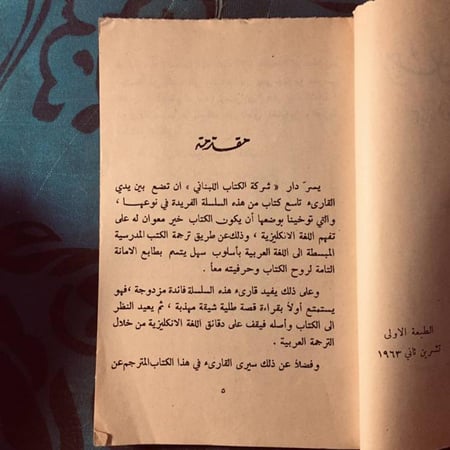 مقدمة
يسرّ دار « شركة الكتاب اللبناني » ان تضع بين يدي
القارىء تاسع كتاب من هذه السلسلة الفريدة في نوعها ،
والتي توخينا بوضعها أن يكون الكتاب خير معوان له على
تفهم اللغة الانكليزية ، وذلك عن طريق ترجمة الكتب المدرسية
المبسطة الى اللغة العربية بأسلوب سهل يتسم بطابع الامانة
التامة لروح الكتاب وحرفيته معاً .
وعلى ذلك يفيد قارىء هذه السلسلة فائدة مزدوجة ، فهو
يستمتع أولاً بقراءة قصة طلية شيقة مهذبة ، ثم يعيد النظر
الى الكتاب وأصله فيقف على دقائق اللغة الانكليزية من خلال
الترجمة العربية .
وفضلاً عن ذلك سيرى القارىء في هذا الكتاب المترجم عن
٥
الطبعة الاولى
تشرين ثاني ١٩٦٣